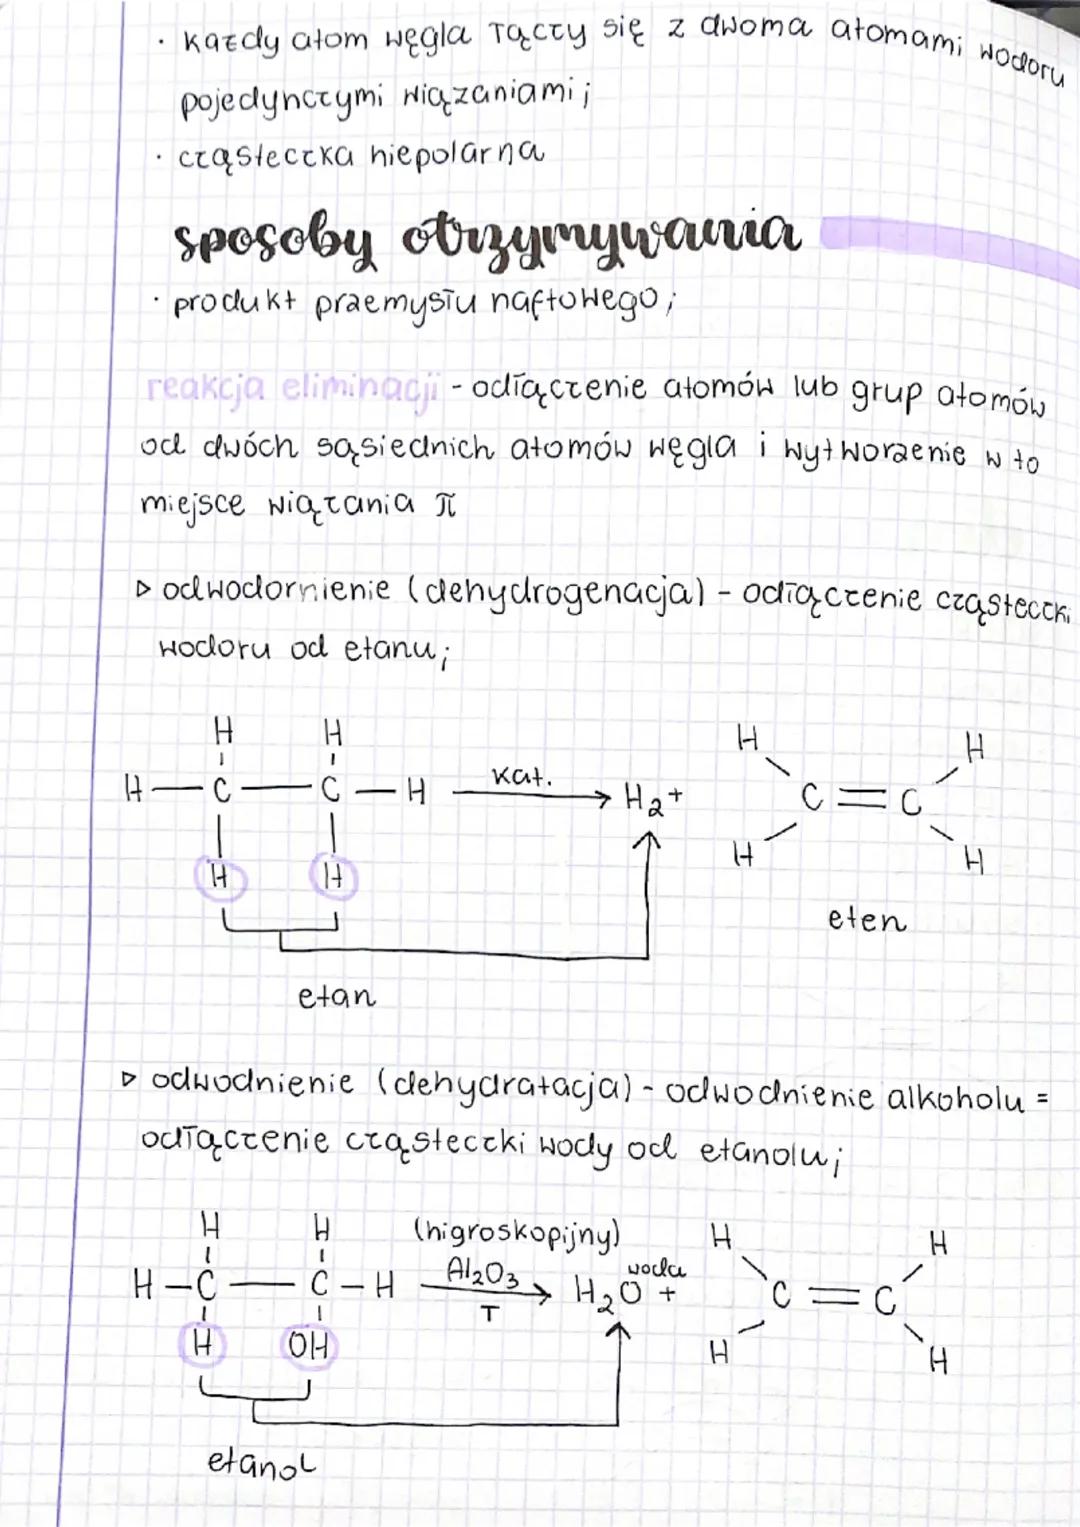 · każdy atom węgla łączy się z dwoma atomami wodoru
pojedynczymi wiązaniami;
· cząsteczka niepolarna
sposoby otrzymywania
· produkt przemysłu naftowego;
reakcja eliminacji - odłączenie atomów lub grup atomów
od dwóch sąsiednich atomów węgla i wytworzenie w to
miejsce wiązania π
▷ odwodornienie (dehydrogenacja) - odłączenie cząsteczki
wodoru od etanu;
H H H H
H — C — C — H kat. → H₂ + C = C
H H H H
eten
etan
▷ odwodnienie (dehydratacja) - odwodnienie alkoholu =
odłączenie cząsteczki wody od etanolu;
H H (higroskopijny) H H
H – C — C – H Al₂O₃ T → H₂O woda + C = C
H OH H H
etanol